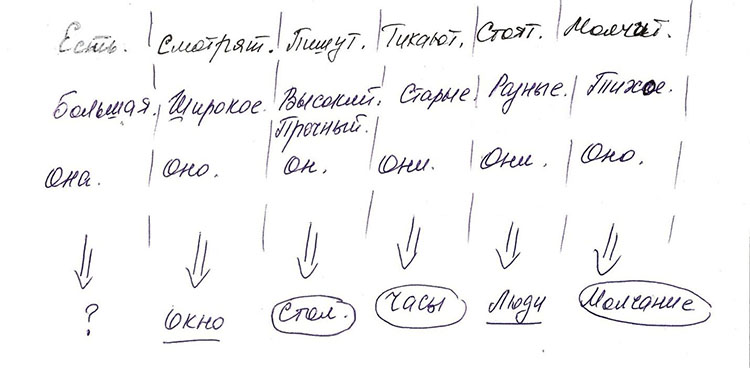 Есть. Смотрят. Пишут. Тикают. Стоят. Молчат.
Большая. Широкое. Высокий. Старые. Разные. Тихое.
Прочный.
Она. Оно. Он. Они. Они. Оно.
? Окно Стол. Часы Люди Молчание